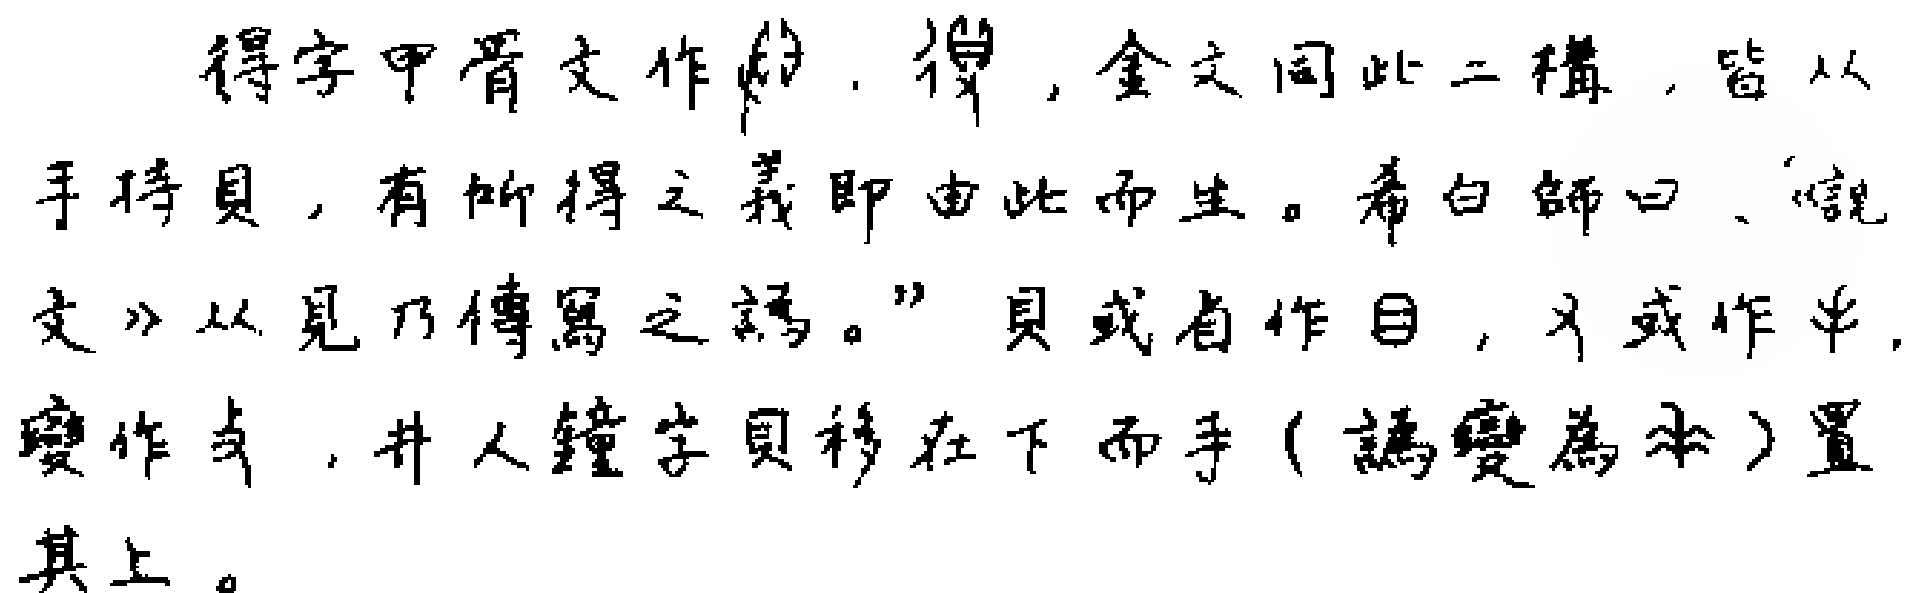 得字甲骨文作、，金文同此二構，皆从
手持貝，有所得之義即由此而生。希白師曰、“《說
文》从見乃傳寫之譌。”貝或省作目，又或作手，
變作攴，井人鐘字貝移在下而手（譌變為）置
其上。